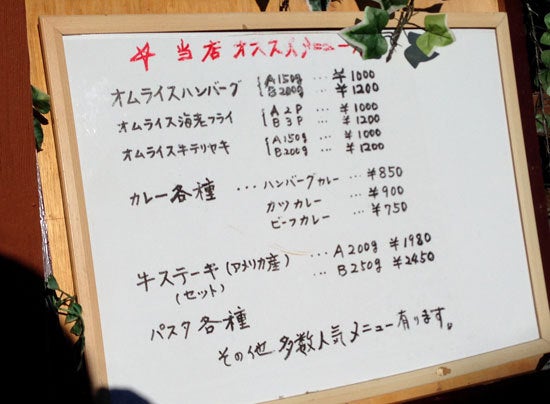 ☆ 当店オススメメニュー
オムライスハンバーグ A150g … ¥1000
B200g … ¥1200
オムライス海老フライ A2P … ¥1000
B3P … ¥1200
オムライス牛テリヤキ A150g … ¥1000
B200g … ¥1200
カレー各種 … ハンバーグカレー … ¥850
カツカレー … ¥900
ビーフカレー … ¥750
牛ステーキ(アメリカ産) … A200g ¥1980
(セット) … B250g ¥2450
パスタ各種
その他多数人気メニュー有ります。